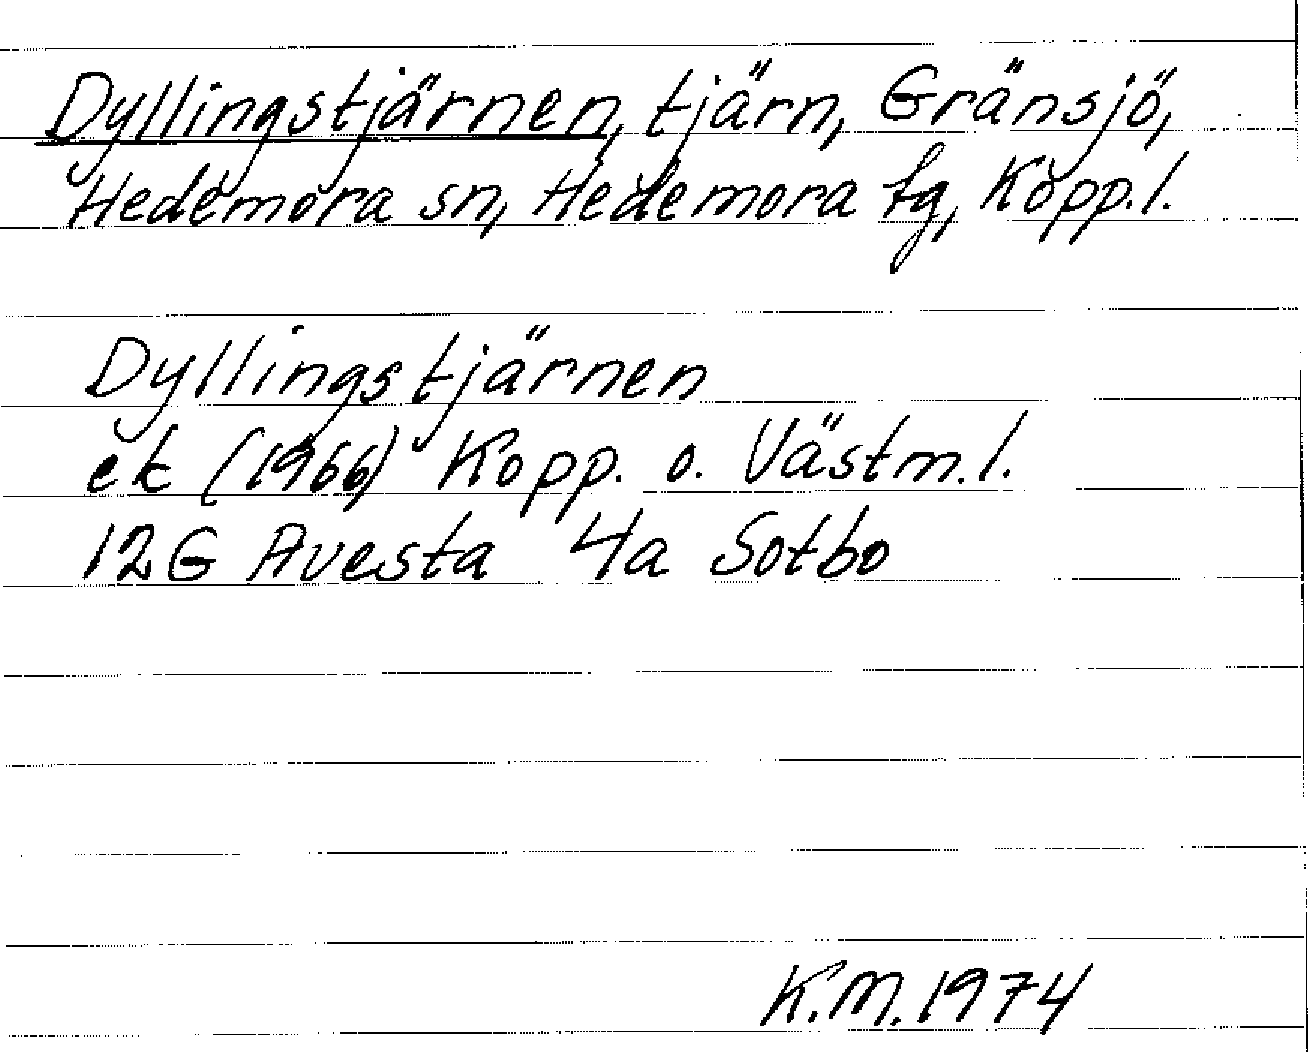 Dyllingstjärnen, tjärn, Gränsjö,
Hedemora sn, Hedemora tg, Kopp. l.
Dyllingstjärnen
ek (1966) Kopp. o. Västm. l.
12G Avesta 4a Sotbo
K.M. 1974